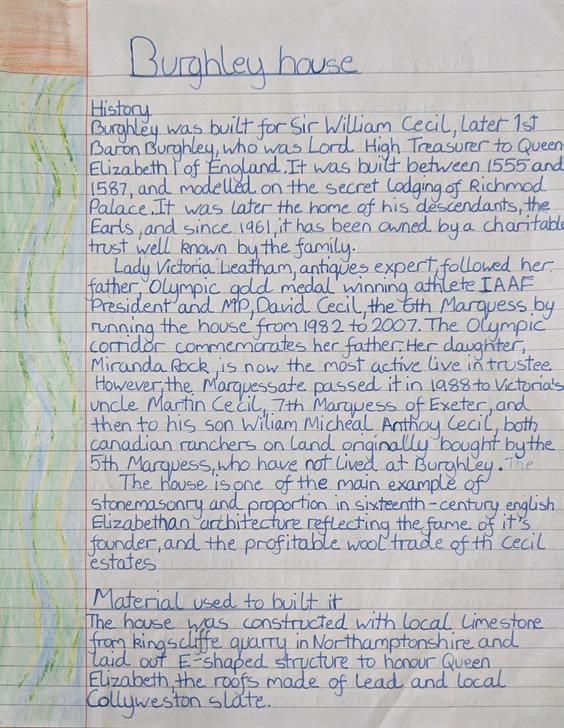 Burghley house
History
Burghley was built for Sir William Cecil, Later 1st
Baron Burghley, who was Lord High Treasurer to Queen
Elizabeth I of England. It was built between 1555 and
1587, and modelled on the secret lodging of Richmod
Palace. It was later the home of his descendants, the
Earls, and since 1961, it has been owned by a charitable
trust well known by the family.
Lady Victoria Leatham, antiques expert, followed her
father, Olympic gold medal winning athlete IAAF
President and MP, David Cecil, the 6th Marquess by
running the house from 1982 to 2007. The Olympic
corridor commemorates her father. Her daughter,
Miranda Rock, is now the most active live in trustee.
However, the Marquessate passed it in 1988 to Victoria's
uncle Martin Cecil, 7th Marquess of Exeter, and
then to his son Wiliam Micheal Anthoy Cecil, both
canadian ranchers on land originally bought by the
5th Marquess, who have not lived at Burghley. The
The house is one of the main example of
stonemasonry and proportion in sixteenth-century english
Elizabethan architecture reflecting the fame of it's
founder, and the profitable wool trade of th Cecil
estates
Material used to built it
The house was constructed with local limestone
from kingscliffe quarry in Northamptonshire and
laid out E-shaped structure to honour Queen
Elizabeth, the roofs made of lead and local
Collyweston slate.